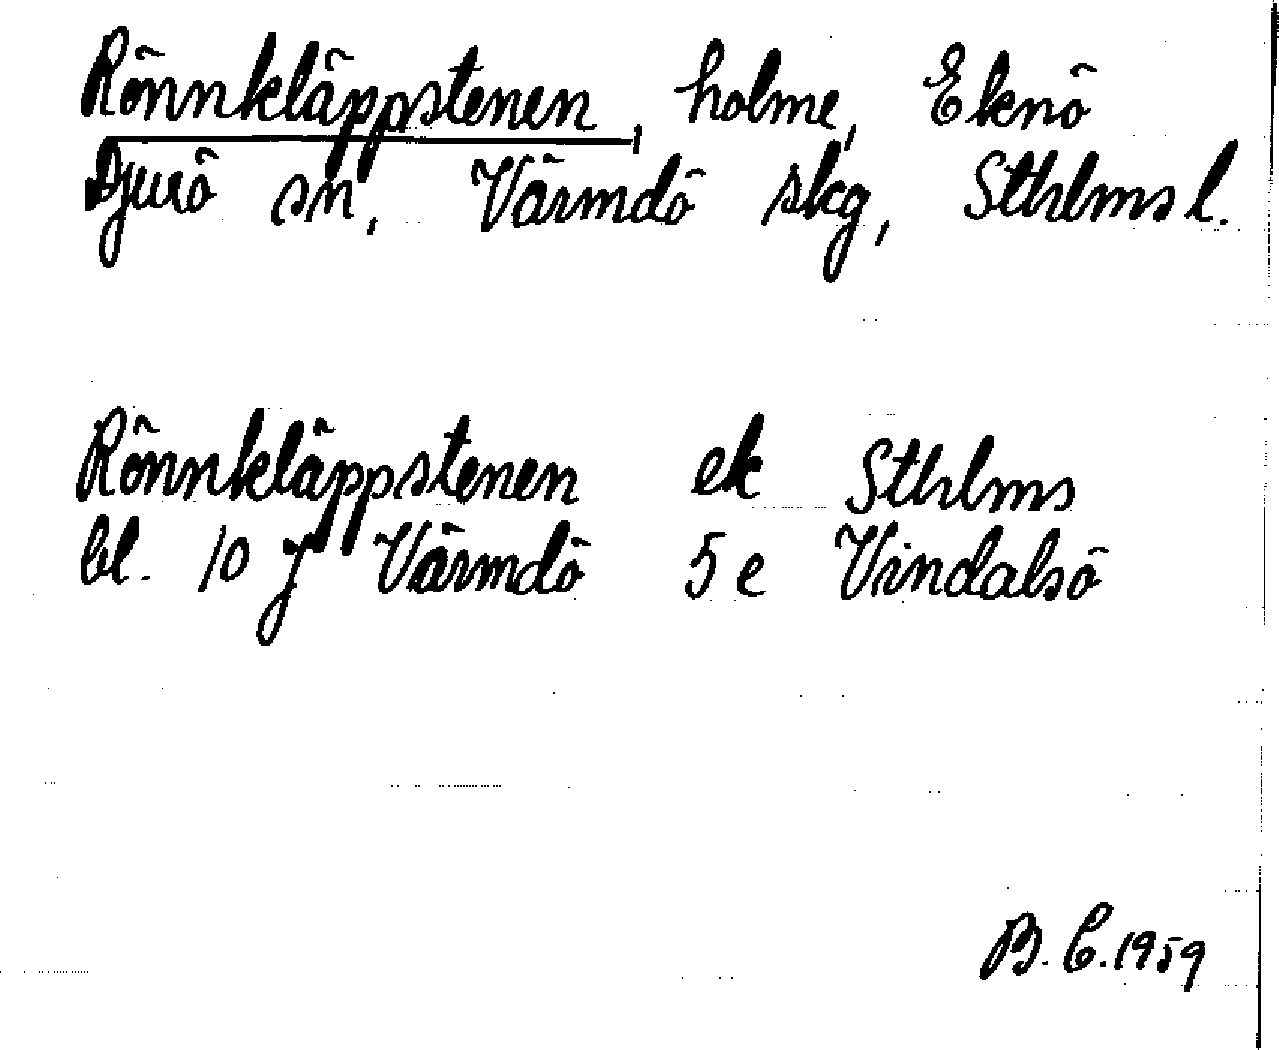 Rönnkläppstenen, holme, Eknö
Djurö sn, Värmdö skg, Sthlms l.
Rönnkläppstenen ek Sthlms
bl. 10 j Värmdö 5 e Vindalsö
B. C. 1959